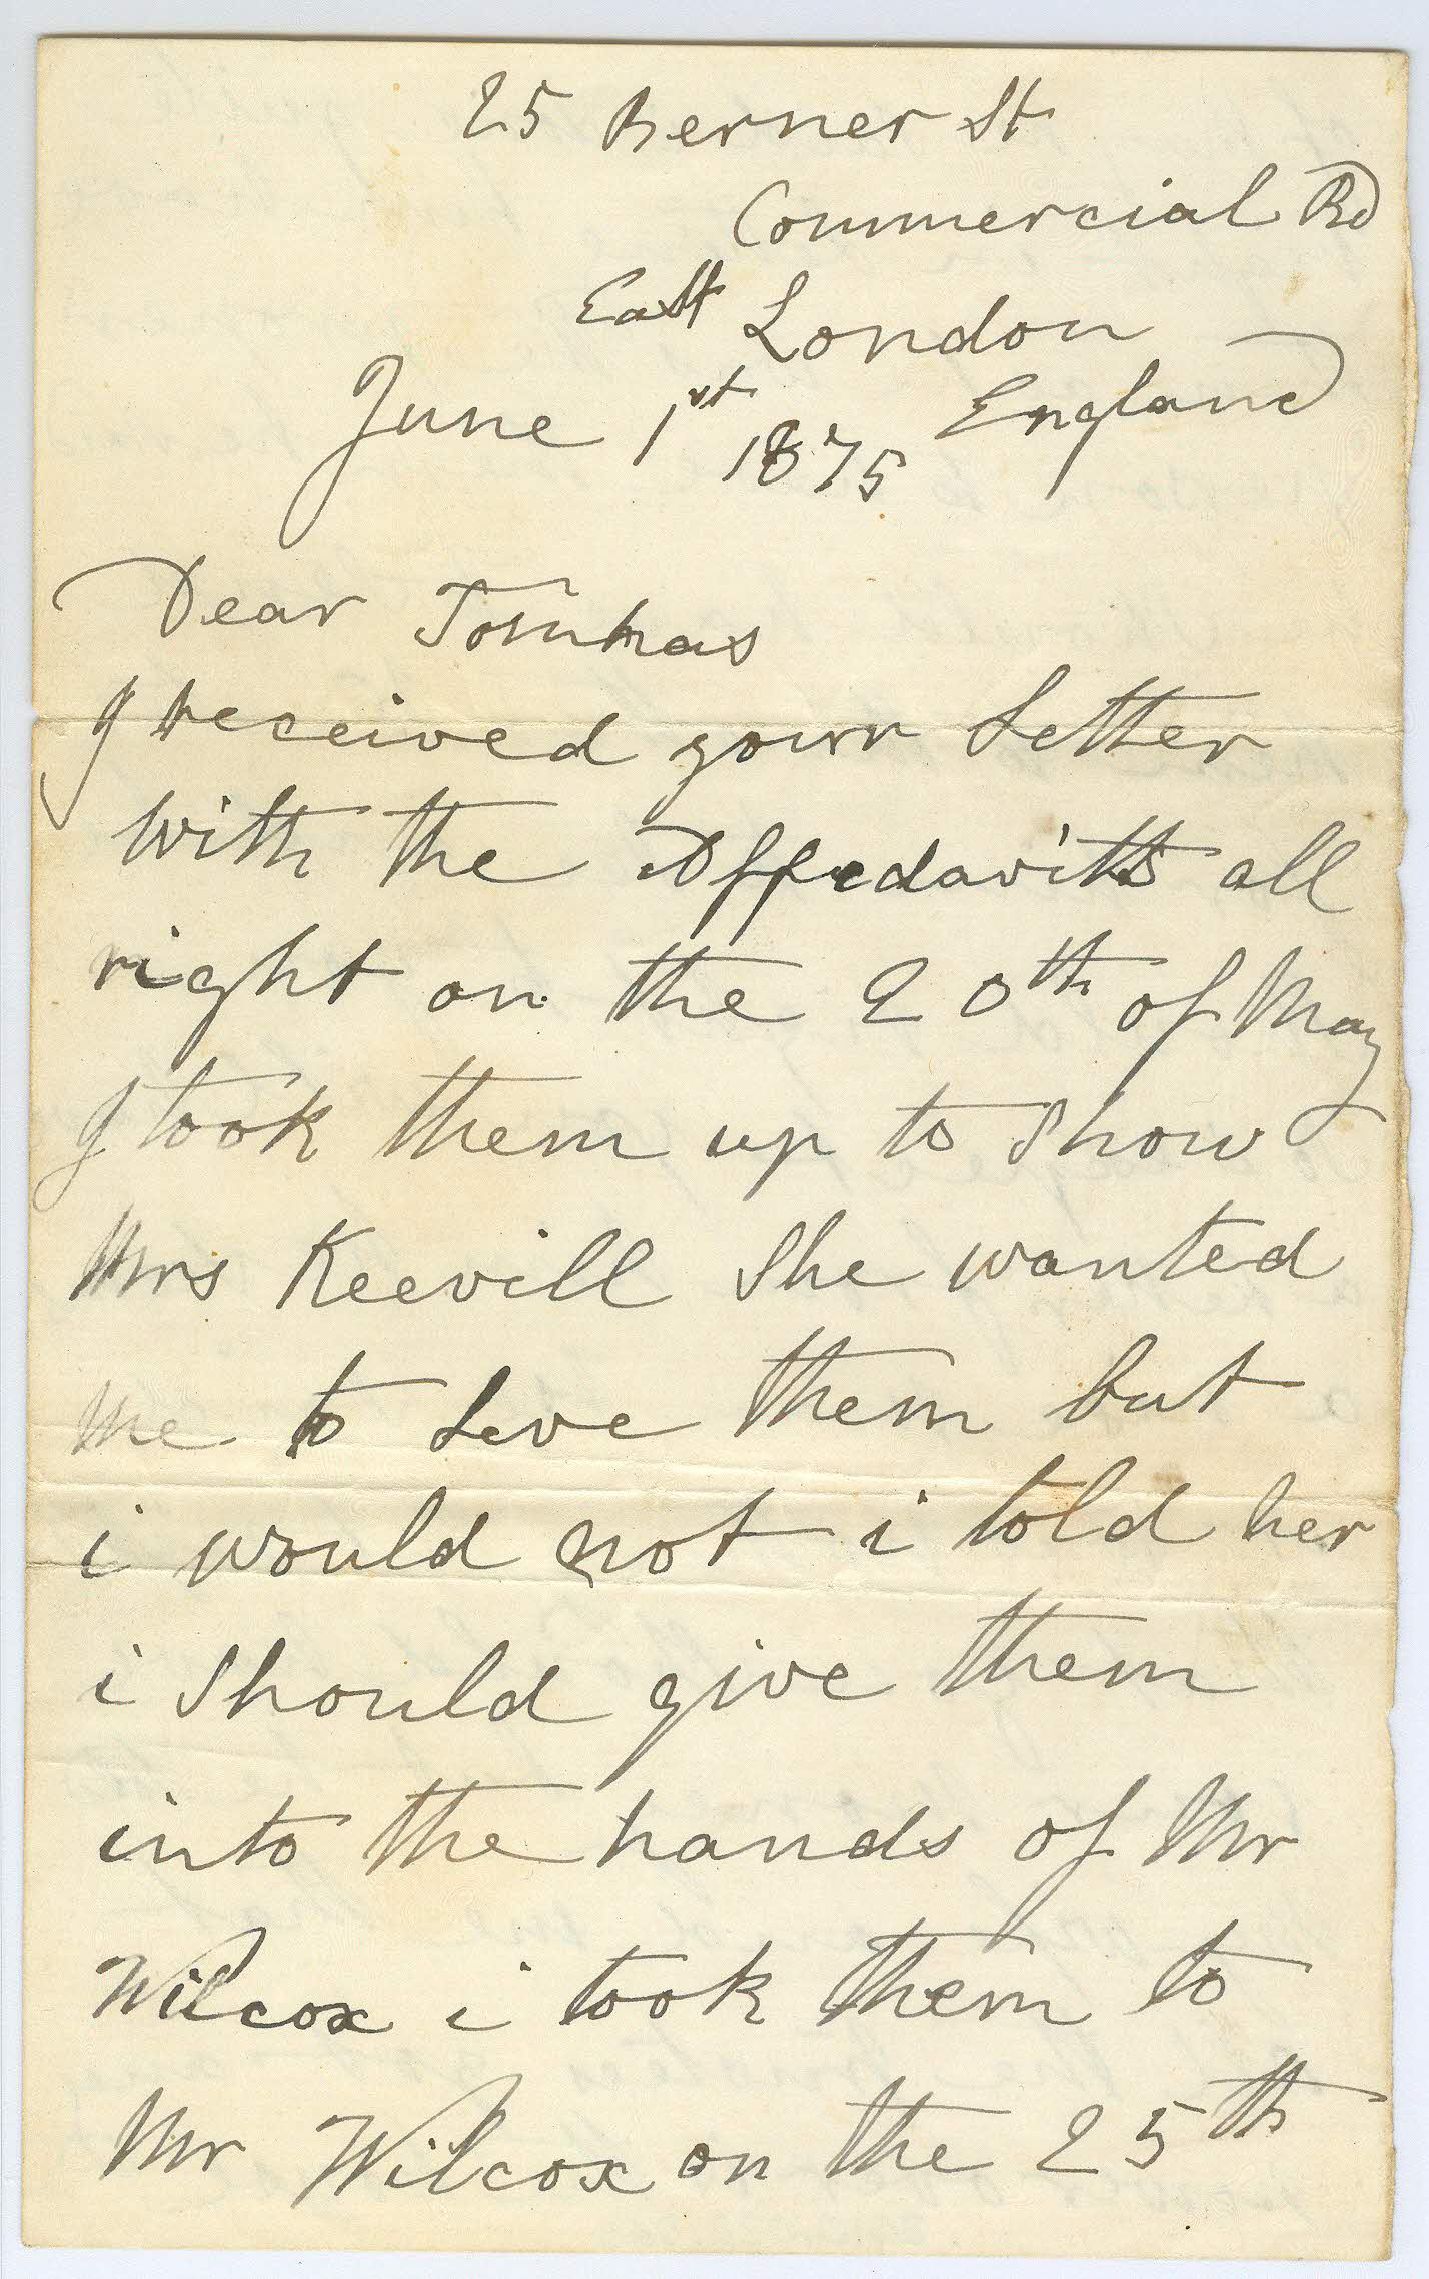 25 Berner St
Commercial Rd
East London
England
June 1st 1875
Dear Tomhas
I received your Letter
with the Affedavitts all
right on the 20th of May
I took them up to Show
Mrs Keevill She wanted
me to Leve them but
i would not i told her
i Should give them
into the hands of Mr
Wilcox i took them to
Mr Wilcox on the 25th